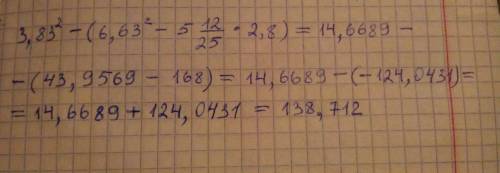 3,83² - (6,63² - 5 12/25 · 2,8) = 14,6689 -
- (43,9569 - 168) = 14,6689 - (-124,0431) =
= 14,6689 + 124,0431 = 138,712